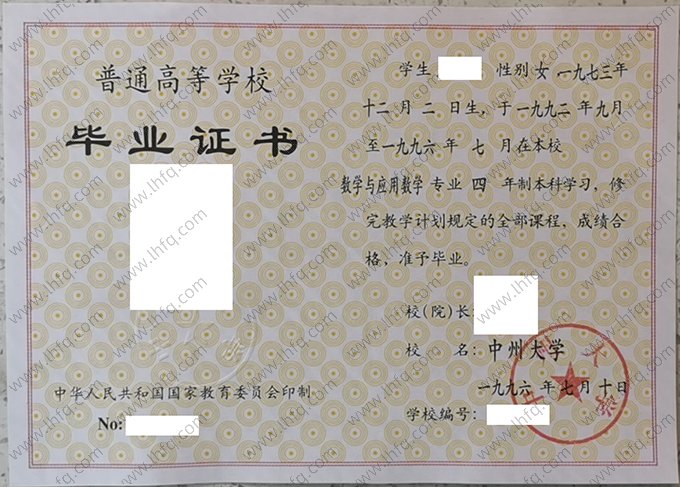 普通高等学校
毕业证书
中华人民共和国国家教育委员会印制
No:
学生 性别 女 一九七三年
十二月二日生，于一九九二年九月
至一九九六年七月在本校
数学与应用数学专业四年制本科学习，修
完教学计划规定的全部课程，成绩合
格，准予毕业。
校(院)长:
校 名: 中州大学
一九九六年七月十日
学校编号:
www.lhfq.com